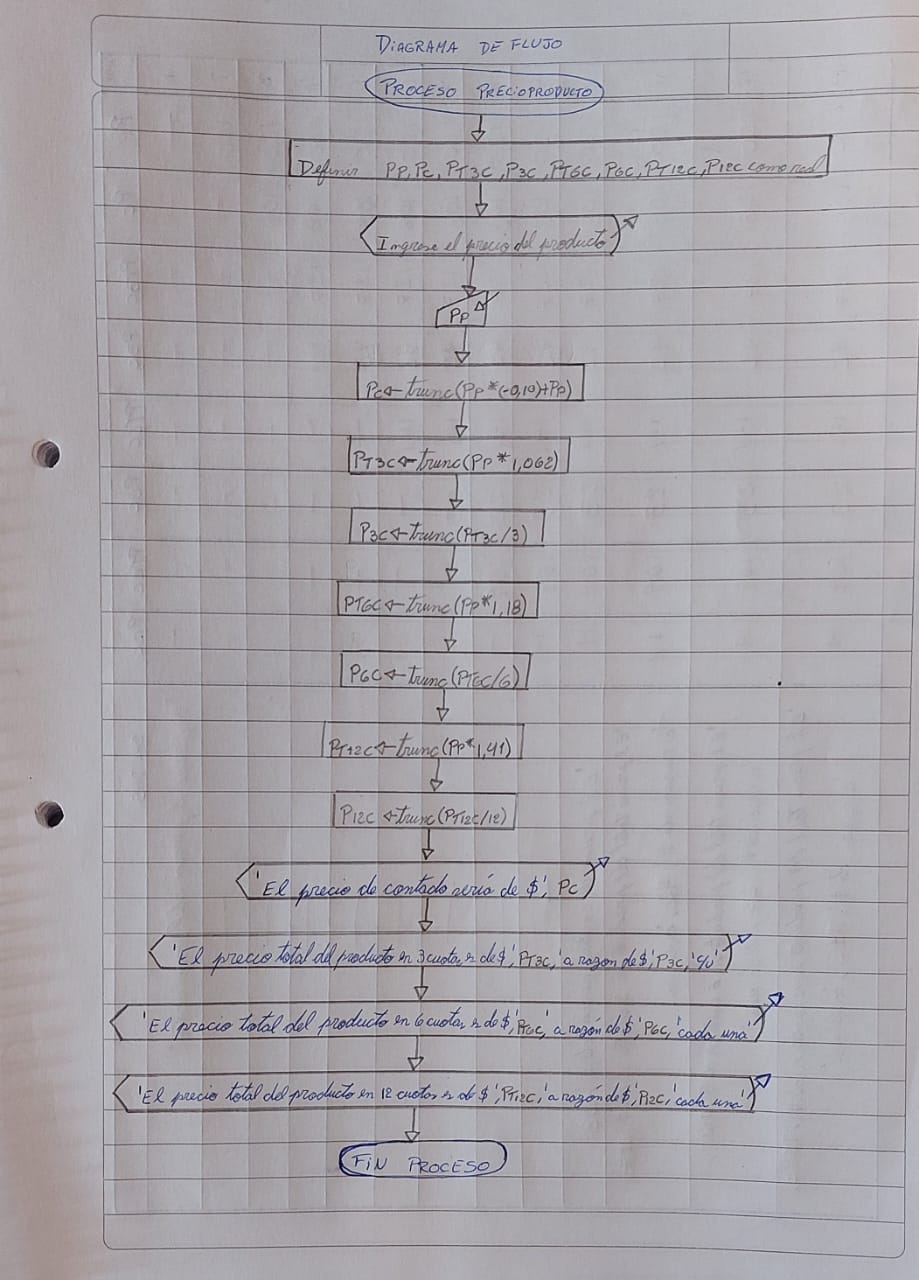 DIAGRAMA DE FLUJO
PROCESO PRECIOPRODUCTO
Definir PP, Pc, PT3C, P3C, PT6C, P6C, PT12C, P12C como real
Ingrese el precio del producto
PP
Pc←trunc(PP*(-0,10)+PP)
PT3C←trunc(PP*1,062)
P3C←trunc(PT3C/3)
PT6C←trunc(PP*1,18)
P6C←trunc(PT6C/6)
PT12C←trunc(PP*1,41)
P12C←trunc(PT12C/12)
'El precio de contado sería de $', Pc
'El precio total del producto en 3 cuotas es de $', PT3C, 'a razón de $', P3C, 'c/u'
'El precio total del producto en 6 cuotas es de $', PT6C, 'a razón de $', P6C, 'cada una'
'El precio total del producto en 12 cuotas es de $', PT12C, 'a razón de $', P12C, 'cada una'
FIN PROCESO